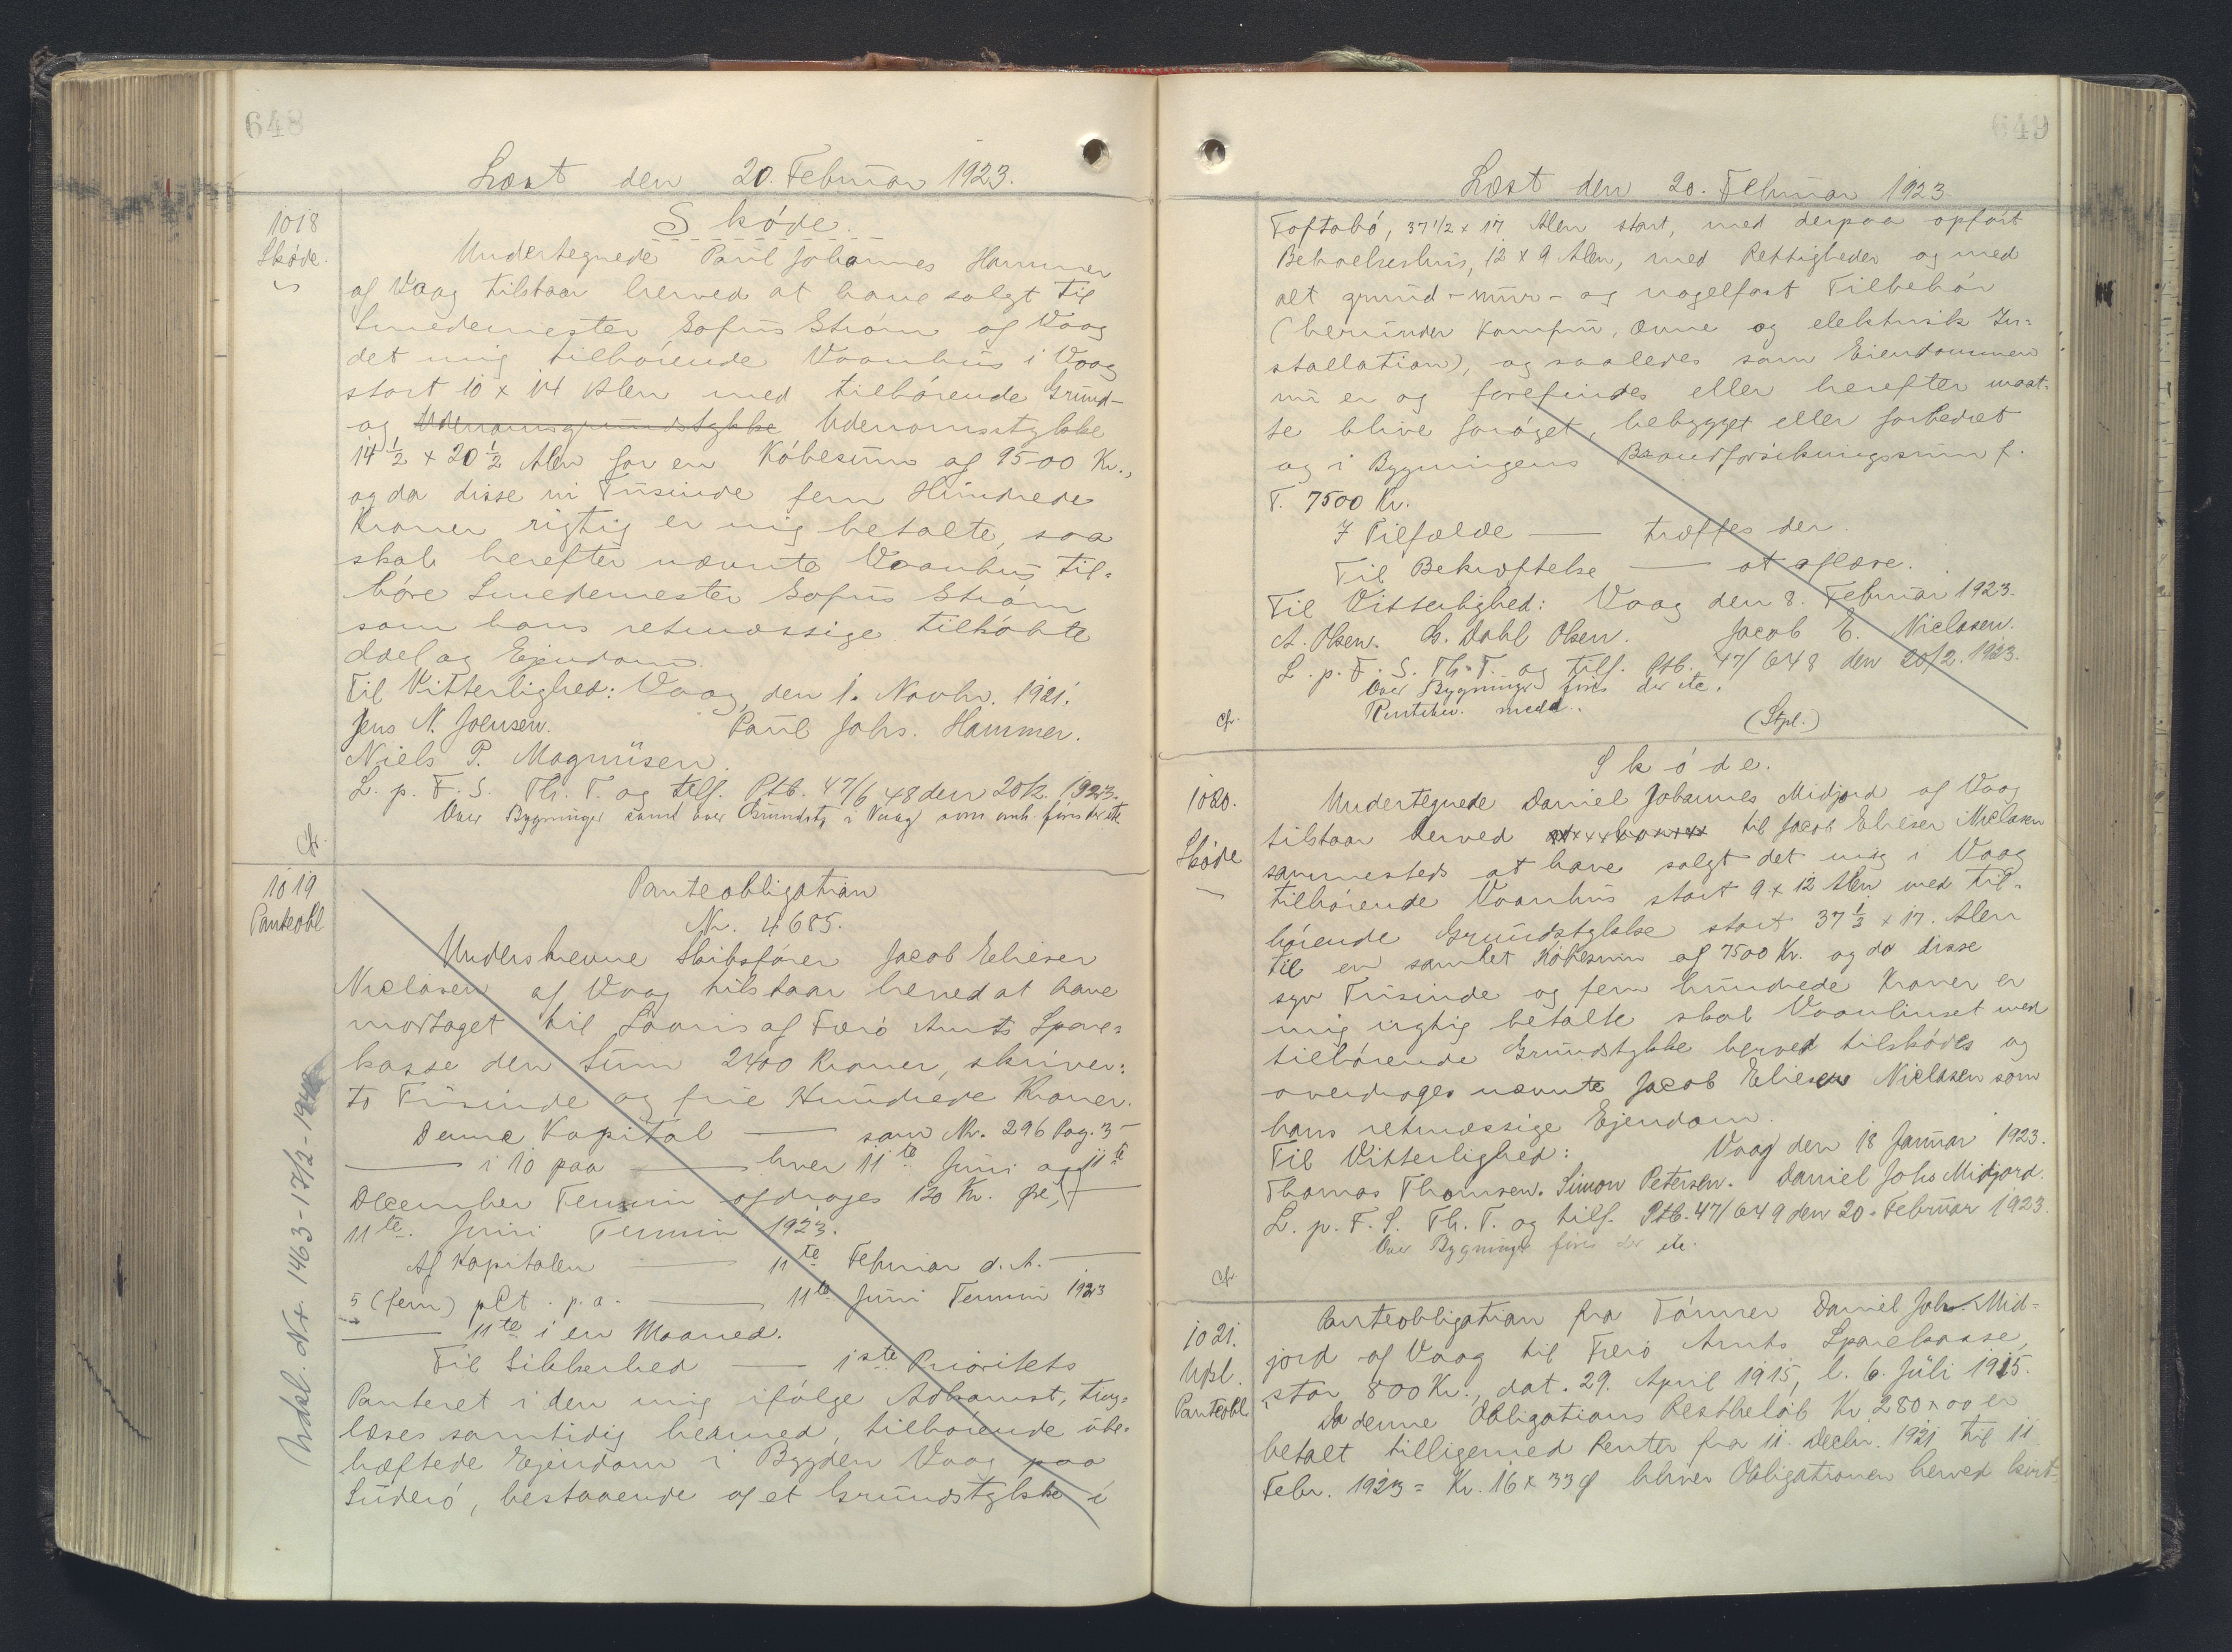 648
Læst den 20. Februar 1923.
1018
Skøde.
Skøde.
Undertegnede Paul Johannes Hammer
af Vaag tilstaar herved at have solgt til
Smedemester Sofus Strøm af Vaag
det mig tilhørende Vaanhus i Vaag
stort 10 x 14 Alen med tilhørende Grund-
og Udenomsgrundstykke Udenomsstykke
14 1/2 x 20 1/2 Alen for en Købesum af 9500 Kr.,
og da disse ni Tusinde fem Hundrede
Kroner rigtig er mig betalte, saa
skal herefter nævnte Vaanhus til-
høre Smedemester Sofus Strøm
som hans retmæssige tilkøbte
Odel og Ejendom.
Til Vitterlighed: Vaag, den 1. Novbr. 1921.
Jens N. Joensen. Paul Johs. Hammer.
Niels P. Magnusen.
L. p. F. S. Th. T. og tilf. Ptb. 47/648 den 20/2. 1923.
Over Bygninger samt over Grundst. i Vaag som omh. føres der etc
Cfr.
1019
Panteobl
Panteobligation
Nr. 4685.
Underskrevne Skibsfører Jacob Elieser
Niclasen af Vaag tilstaar herved at have
modtaget til Laans af Færø Amts Spare-
kasse den Sum 2400 Kroner, skriver:
to Tusinde og fire Hundrede Kroner.
Denne Kapital — som Nr. 296 Pag. 3 —
— i 10 paa — hver 11te Juni og 11te
December Termin afdrages 120 Kr. —
11te Juni Termin 1923.
Af Kapitalen — 11te Februar d. A. —
5 (fem) pCt. p. a. — 11te Juni Termin 1923
— 11te i en Maaned.
Til Sikkerhed — 1ste Prioritets
Panteret i den mig ifølge Adkomst,
læses samtidig hermed, tilhørende ube-
hæftede Ejendom i Bygden Vaag paa
Suderø, bestaaende af et Grundstykke i
Udsl. Nr. 1463-17/2-
649
Læst den 20. Februar 1923
Toftabø, 37 1/2 x 17 Alen stort, med derpaa opført
Beboelseshus, 12 x 9 Alen, med Rettigheder og med
alt grund- mur- og nagelfast Tilbehør
(herunder Komfur, Ovne og elektrisk In-
stallation), og saaledes som Eiendommen
nu er og forefindes eller herefter maat-
te blive forøget, bebygget eller forbedret
og i Bygningens Brandforsikringssum f.
T. 7500 Kr.
I Tilfælde — træffes der.
Til Bekræftelse — at aflæse.
Til Vitterlighed: Vaag den 8. Februar 1923.
A. Olsen. G. Dahl Olsen. Jacob E. Niclasen.
L. p. F. S. Th. T. og tilf. Ptb. 47/648 den 20/2. 1923.
Over Bygninger føres der etc.
medd.
(Stpl.)
Cfr.
Skøde.
1020.
Skøde
Undertegnede Daniel Johannes Midjord af Vaag
tilstaar herved til Jacob Elieser Niclasen
sammesteds at have solgt det mig i Vaag
tilhørende Vaanhus stort 9 x 12 Alen med til-
hørende Grundstykke stort 37 1/2 x 17. Alen
til en samlet Købesum af 7500 Kr. og da disse
syv Tusinde og fem hundrede Kroner er
mig rigtig betalte skal Vaanhuset med
tilhørende Grundstykke herved tilskødes og
overdrages nævnte Jacob Elieser Niclasen som
hans retmæssige Ejendom.
Til Vitterlighed: Vaag den 18 Januar 1923.
Thomas Thomsen. Simon Petersen. Daniel Johs Midjord.
L. p. F. S. Th. T. og tilf. Ptb. 47/649 den 20. Februar 1923.
Over Bygninger føres der etc.
Cfr.
1021.
Panteobl
Panteobligation fra Tømrer Daniel Johs. Mid-
jord af Vaag til Færø Amts Sparekasse,
stor 800 Kr., dat. 29. April 1915, l. 6. Juli 1915.
Da denne Obligations Restbeløb Kr 280 x 00 er
betalt tilligemed Renter fra 11. Decbr. 1921 til 11.
Febr. 1923 = Kr. 16 x 33 Ø bliver Obligationen herved kvit-